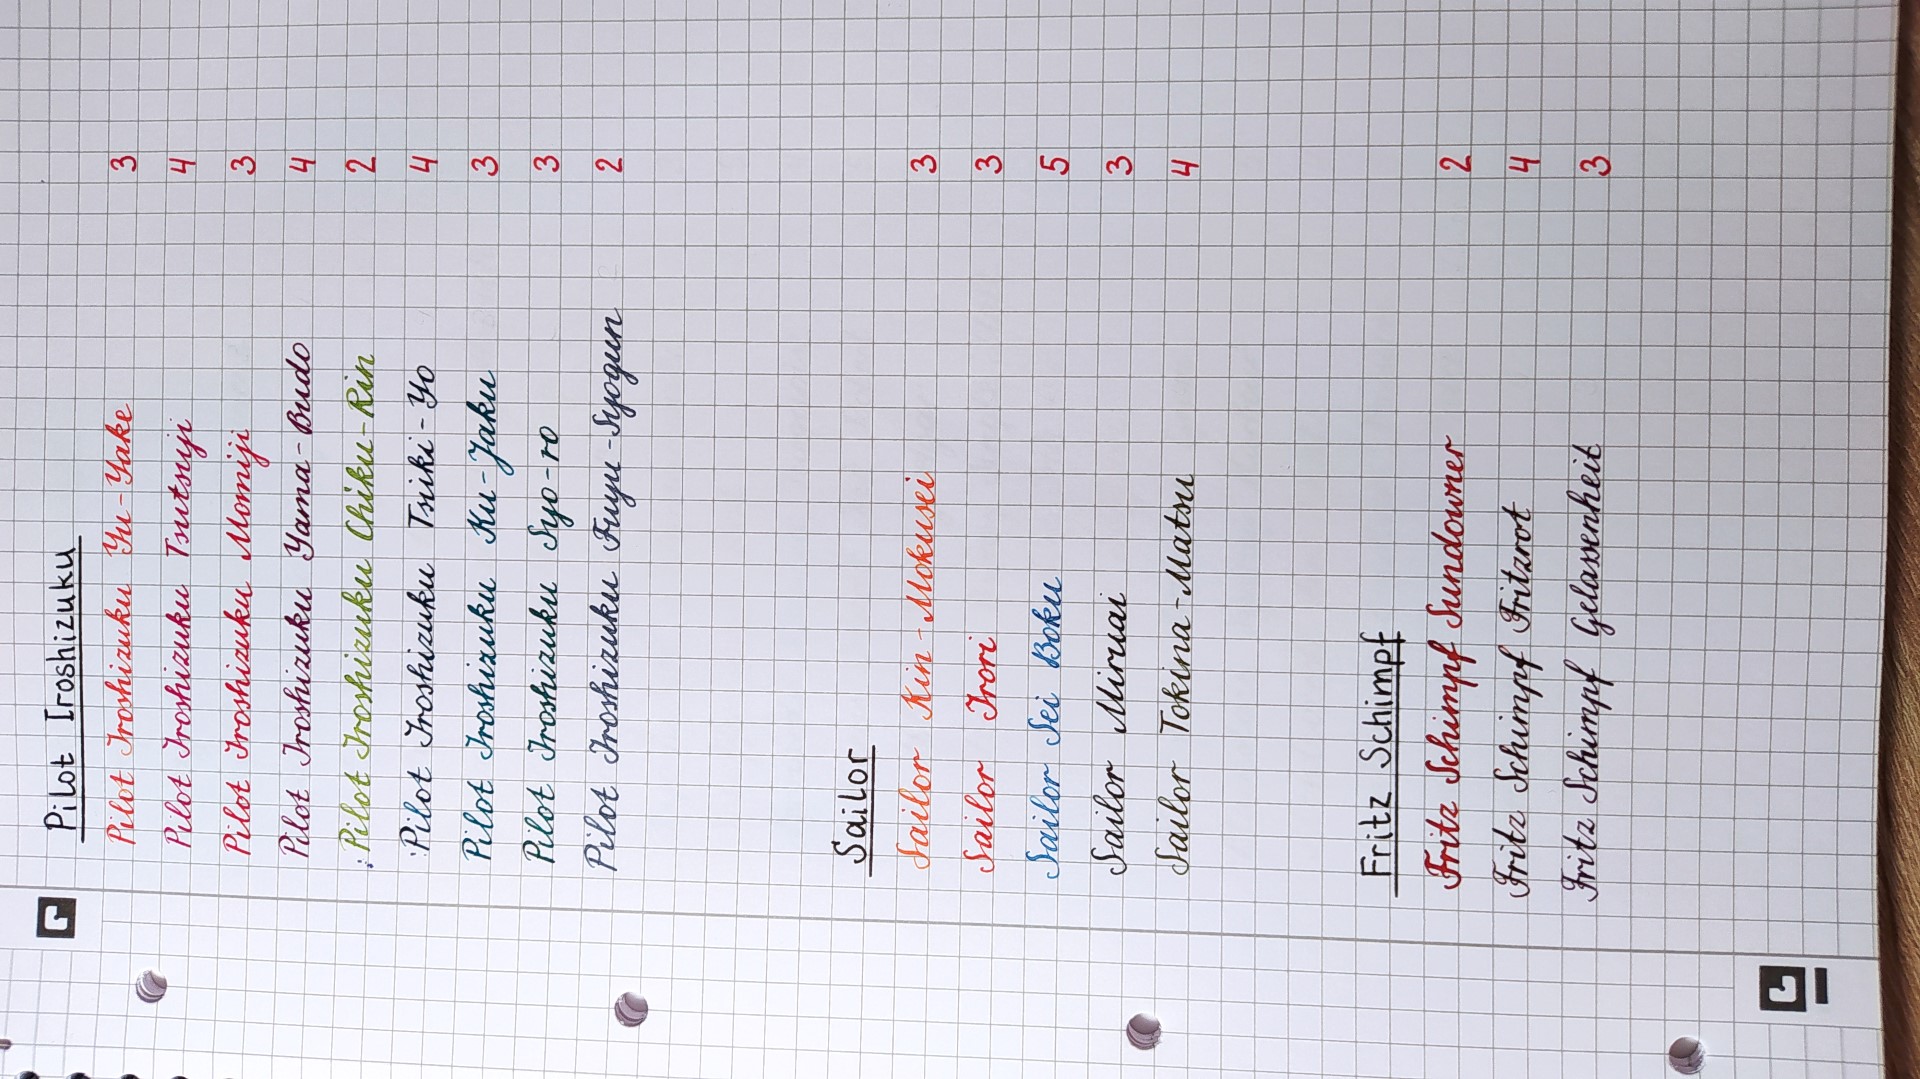 Pilot Iroshizuku
Pilot Iroshizuku Yu-Yake 3
Pilot Iroshizuku Tsutsuji 4
Pilot Iroshizuku Momiji 3
Pilot Iroshizuku Yama-Budo 4
Pilot Iroshizuku Chiku-Rin 2
Pilot Iroshizuku Tsuki-Yo 4
Pilot Iroshizuku Ku-Jaku 3
Pilot Iroshizuku Syo-ro 3
Pilot Iroshizuku Fuyu-Syogun 2
Sailor
Sailor Kin-Mokusei 3
Sailor Irori 3
Sailor Sei Boku 5
Sailor Miruai 3
Sailor Tokina-Matsu 4
Fritz Schimpf
Fritz Schimpf Sundowner 2
Fritz Schimpf Fritzrot 4
Fritz Schimpf Gelassenheit 3